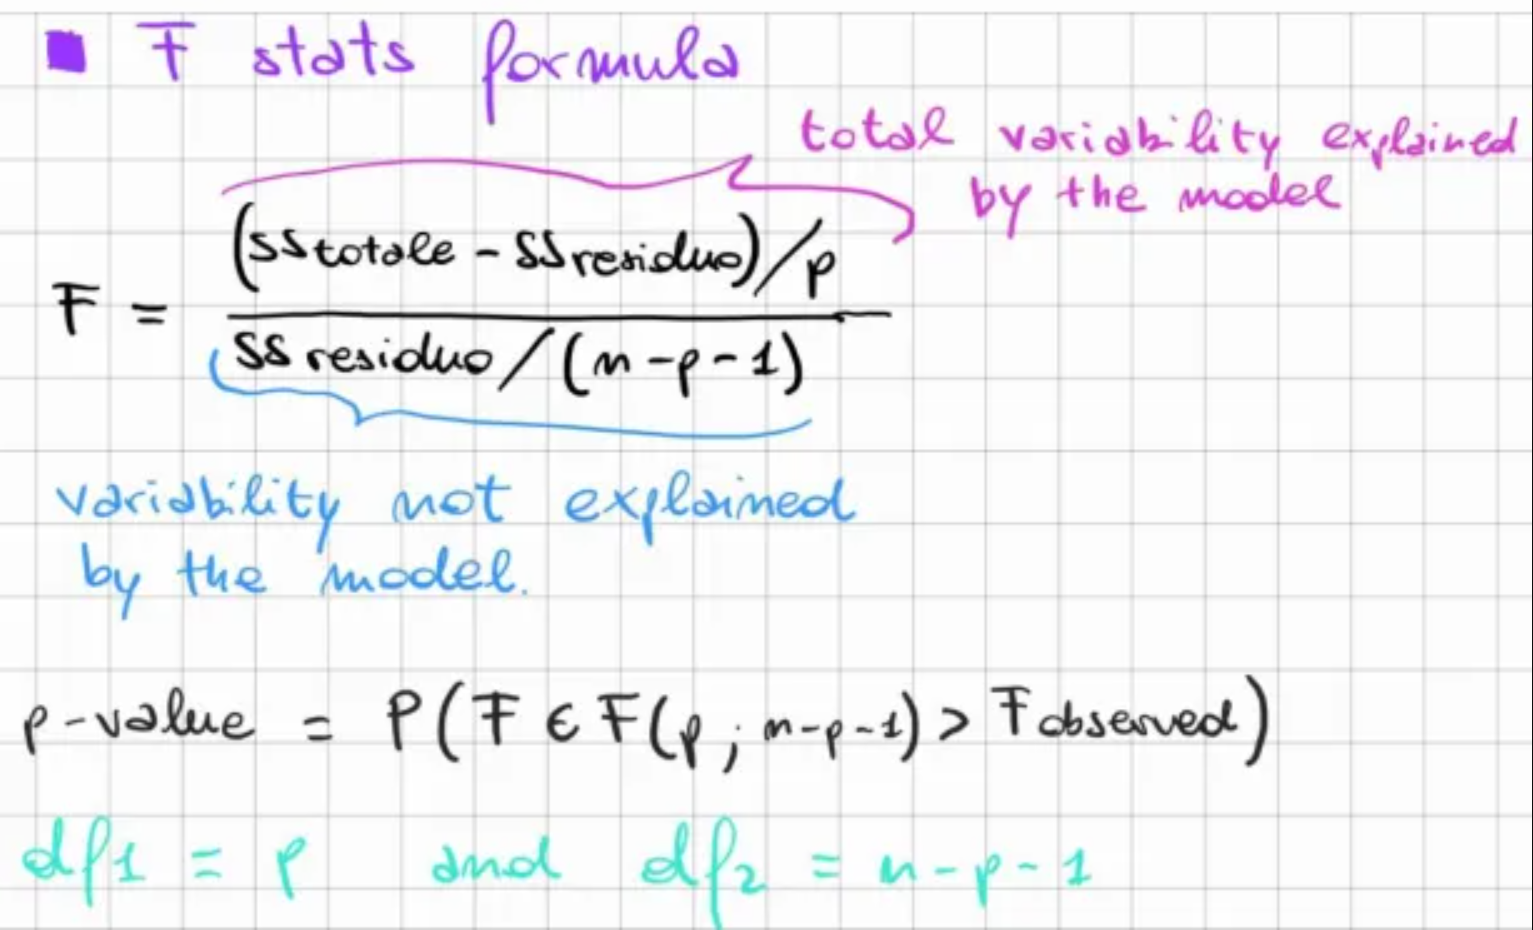 F stats formula
total variability explained
by the model
F = (SStotale - SSresiduo)/p
SSresiduo/(n-p-1)
variability not explained
by the model.
p-value = P(F ∈ F(p; n-p-1) > Fobserved)
df1 = p and df2 = n-p-1